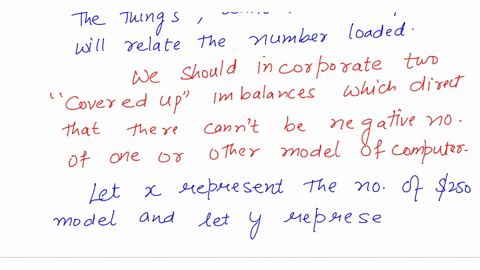 The Things,
will relate the number loaded.
We should incorporate two
"Covered up" imbalances which direct
that there cann't be negative no.
of one or other model of computer.
Let x represent the no. of $250
model and let y represe